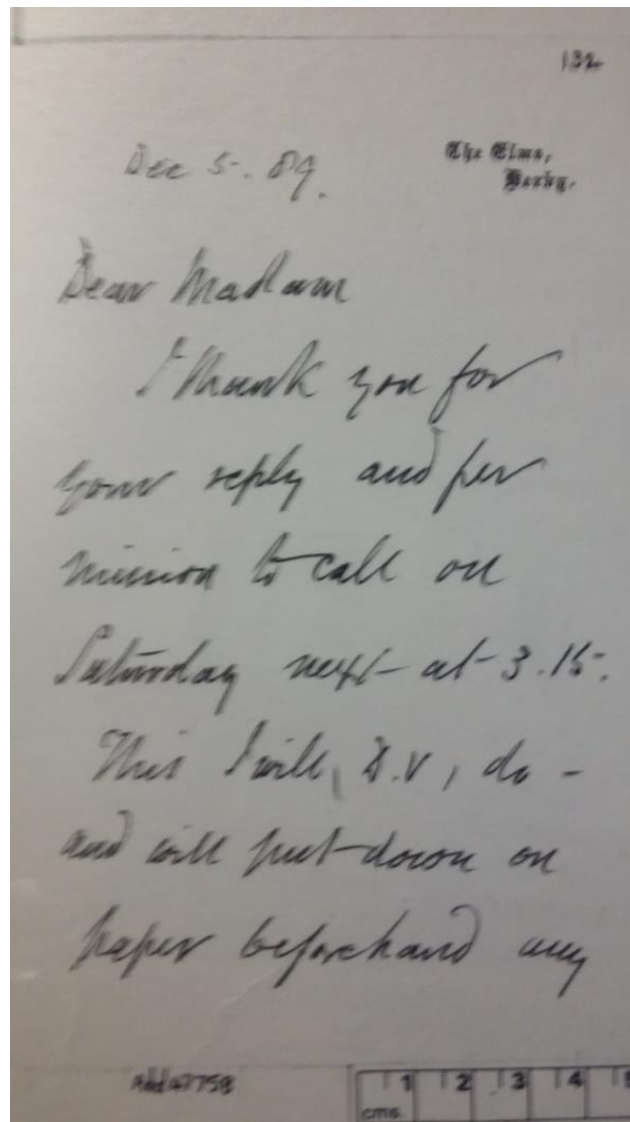 132
Dec 5. 89.
The Elms,
Derby.
Dear Madam
I thank you for
your reply and per
mission to call on
Saturday next at 3.15.
This I will, D.V, do -
and will put down on
paper beforehand any
Add 47758
1 2 3 4 5
cms.